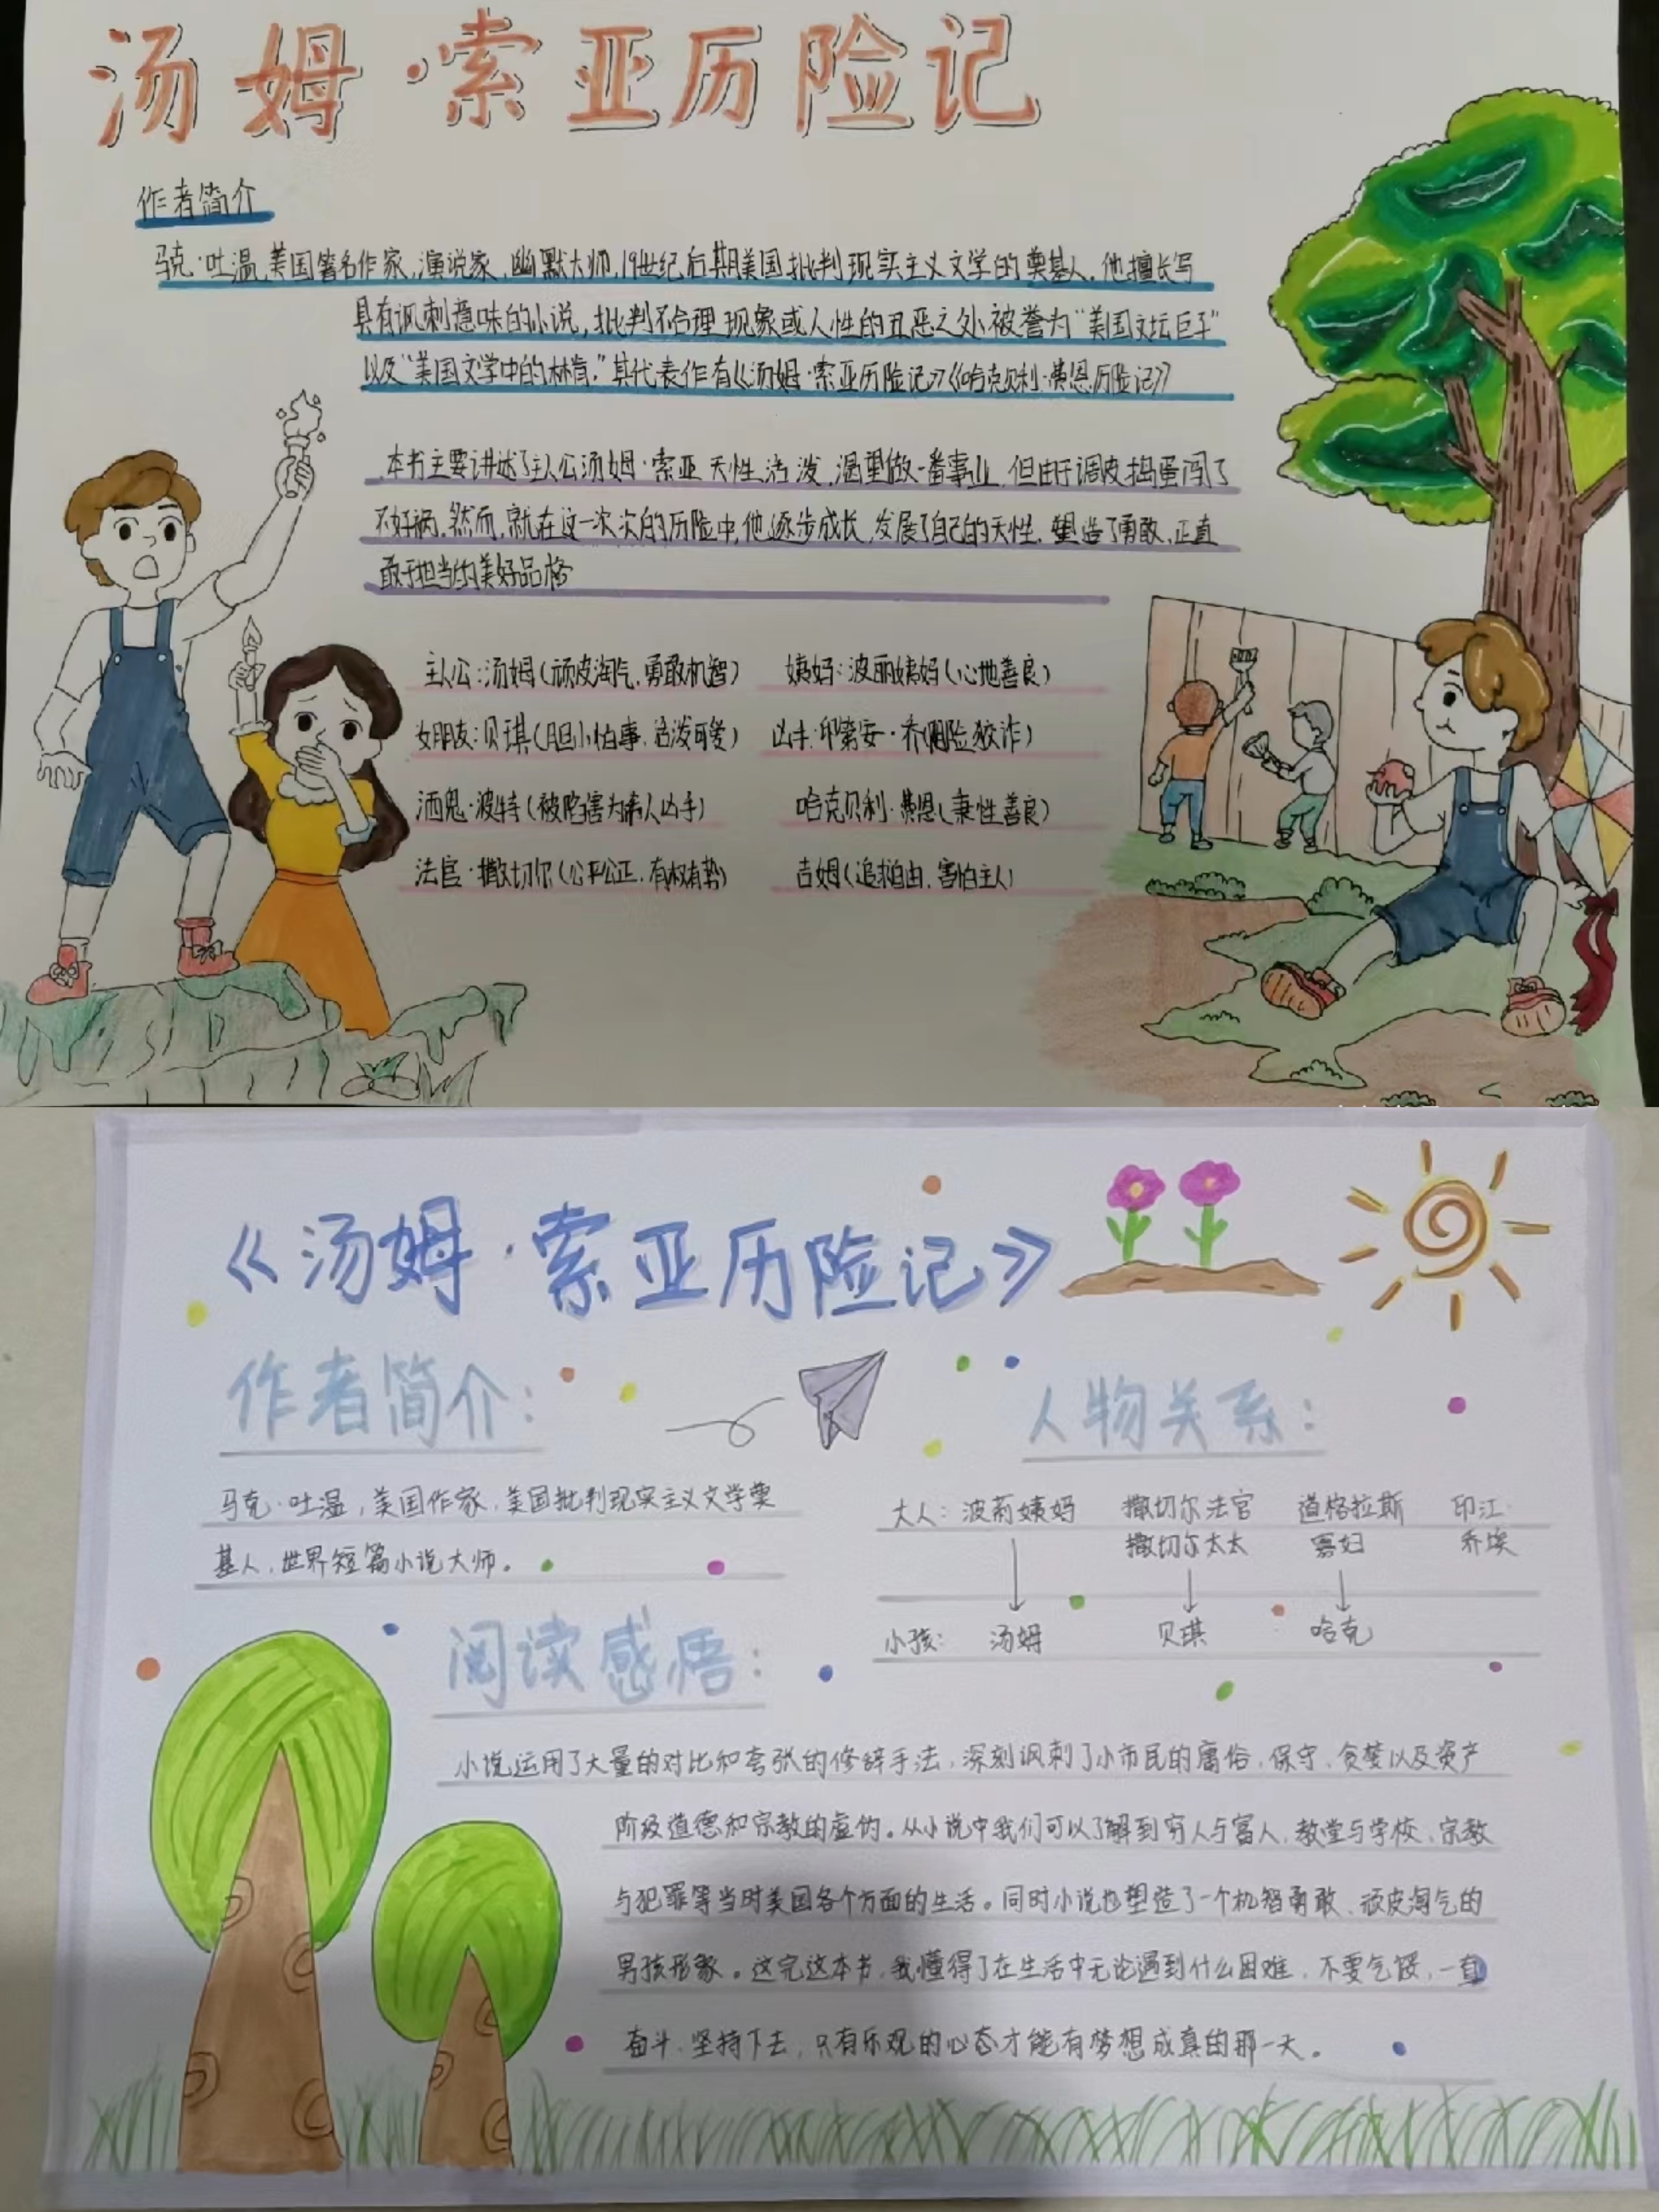 汤姆·索亚历险记
作者简介
马克·吐温,美国著名作家,演说家,幽默大师,19世纪后期美国批判现实主义文学的奠基人,他擅长写
具有讽刺意味的小说,批判不合理现象或人性的丑恶之处,被誉为“美国文坛巨子”
以及“美国文学中的林肯。”其代表作有《汤姆·索亚历险记》《哈克贝利·费恩历险记》
本书主要讲述了主人公汤姆·索亚天性活泼,渴望做一番事业,但由于调皮捣蛋闯了
不好祸,然而,就在这一次次的历险中,他逐步成长,发展了自己的天性,塑造了勇敢,正直
敢于担当的美好品格
主人公:汤姆(顽皮淘气,勇敢机智) 姨妈:波丽姨妈(心地善良)
女朋友:贝琪(胆小怕事,活泼可爱) 凶手:印第安·乔(阴险狡诈)
酒鬼·波特(被陷害为杀人凶手) 哈克贝利·费恩(秉性善良)
法官·撒切尔(公平公正,有权有势) 吉姆(追求自由,害怕主人)
《汤姆·索亚历险记》
作者简介: 人物关系:
马克·吐温,美国作家,美国批判现实主义文学奠
基人,世界短篇小说大师。
大人:波莉姨妈 撒切尔法官 道格拉斯 印江·
撒切尔太太 寡妇 乔埃
小孩: 汤姆 贝琪 哈克
阅读感悟:
小说运用了大量的对比和夸张的修辞手法,深刻讽刺了小市民的庸俗,保守,贪婪以及资产
阶级道德和宗教的虚伪。从小说中我们可以了解到穷人与富人,教堂与学校,宗教
与犯罪等当时美国各个方面的生活。同时小说也塑造了一个机智勇敢、顽皮淘气的
男孩形象。这完这本书,我懂得了在生活中无论遇到什么困难,不要气馁,一直
奋斗,坚持下去,只有乐观的心态才能有梦想成真的那一天。